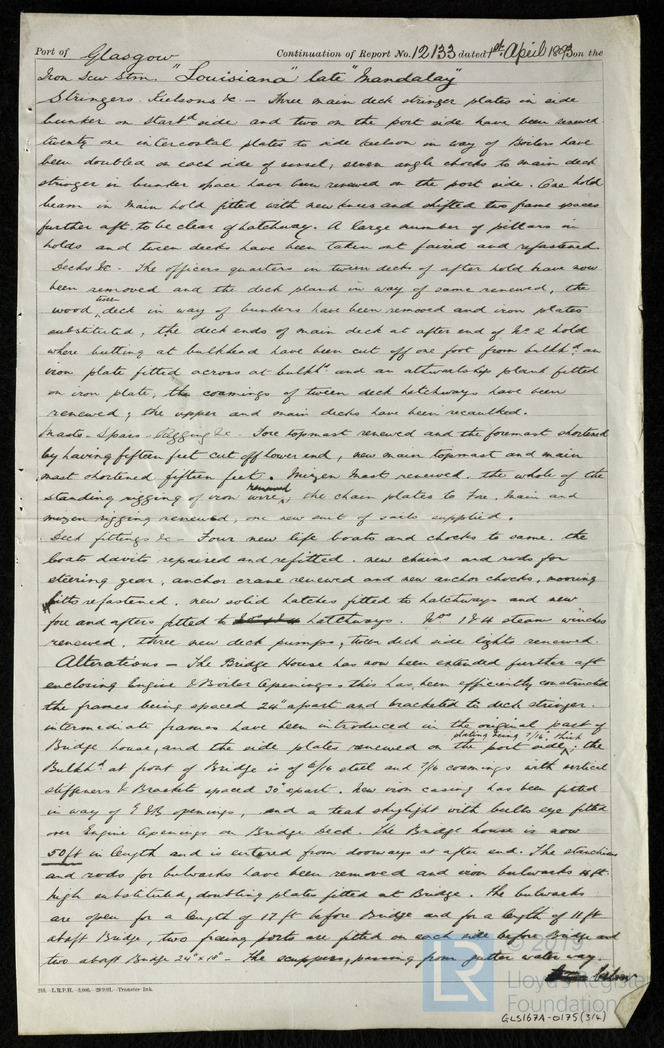 Port of Glasgow Continuation of Report No. 12133 dated 1st April 1893 on the
Iron Screw Stmr. "Louisiana" late "Mandalay"
Stringers Keelsons &c - Three main deck stringer plates in side
bunker on starbd side and two on the port side have been renewed
twenty one intercostal plates to side keelson in way of Boilers have
been doubled on each side of vessel, seven angle chocks to main deck
stringer in bunker space have been renewed on the port side. One hold
beam in main hold fitted with new knees and shifted two frame spaces
further aft to be clear of hatchway. A large number of pillars in
holds and tween decks have been taken out faired and refastened
Decks &c - The officers quarters in tween decks of after hold have now
been removed and the deck plank in way of same renewed, the
wood tween deck in way of bunkers have been removed and iron plates
substituted, the deck ends of main deck at after end of No 2 hold
where butting at bulkhead have been cut off one foot from bulkhd an
iron plate fitted across at bulkhd and an athwartship plank fitted
on iron plate, the coamings of tween deck hatchways have been
renewed; the upper and main decks have been recaulked.
Masts - Spars - Rigging &c - Fore topmast renewed and the foremast shortened
by having fifteen feet cut off lower end, new main topmast and main
mast shortened fifteen feet. Mizen Mast renewed. the whole of the
standing rigging of iron wire renewed, the chain plates to Fore, Main and
mizen rigging renewed, one new suit of sails supplied.
Deck fittings &c - Four new life boats and chocks to same. the
boats davits repaired and refitted. new chains and rods for
steering gear, anchor crane renewed and new anchor chocks, mooring
bitts refastened. new solid hatches fitted to hatchways and new
fore and afters fitted to hatchways. Nos 1 & 4 steam winches
renewed. three new deck pumps, tween deck side lights renewed.
Alterations - The Bridge House has now been extended further aft
enclosing Engine & Boiler Openings & this has been efficiently constructed
the frames being spaced 24" apart and bracketed to deck stringer.
intermediate frames have been introduced in the original part of
Bridge house, and the side plates renewed on the port side, plating being 7/16" thick. the
Bulkhd at front of Bridge is of 6/16 steel and 7/16 coamings with vertical
stiffeners & Brackets spaced 30" apart. New iron casing has been fitted
in way of E & B openings, and a teak skylight with bulls eye fitted
over Engine Openings on Bridge Deck. The Bridge house is now
50 ft in length and is entered from doorways at after end. The stanchions
and rods for bulwarks have been removed and iron bulwarks 4 ft
high substituted, doubling plates fitted at Bridge. The bulwarks
are open for a length of 17 ft before Bridge and for a length of 11 ft
abaft Bridge, two freeing ports are fitted on each side before Bridge and
two abaft Bridge 24" x 18" - The scuppers, passing from gutter water way
below
210.-L.R.P.H.-3,000.-29.9.91.-Transfer Ink.
LR
© 2019
Lloyd's Register
Foundation
GLS167A-0175 (3/4)